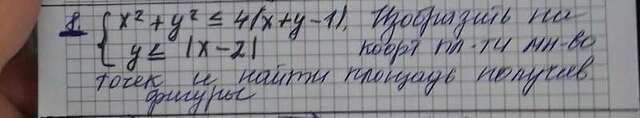 8. { x² + y² ≤ 4(x+y-1), Изобразить на
y ≤ |x-2| коорд пл-ти мн-во
точек и найти площадь получив.
фигуры